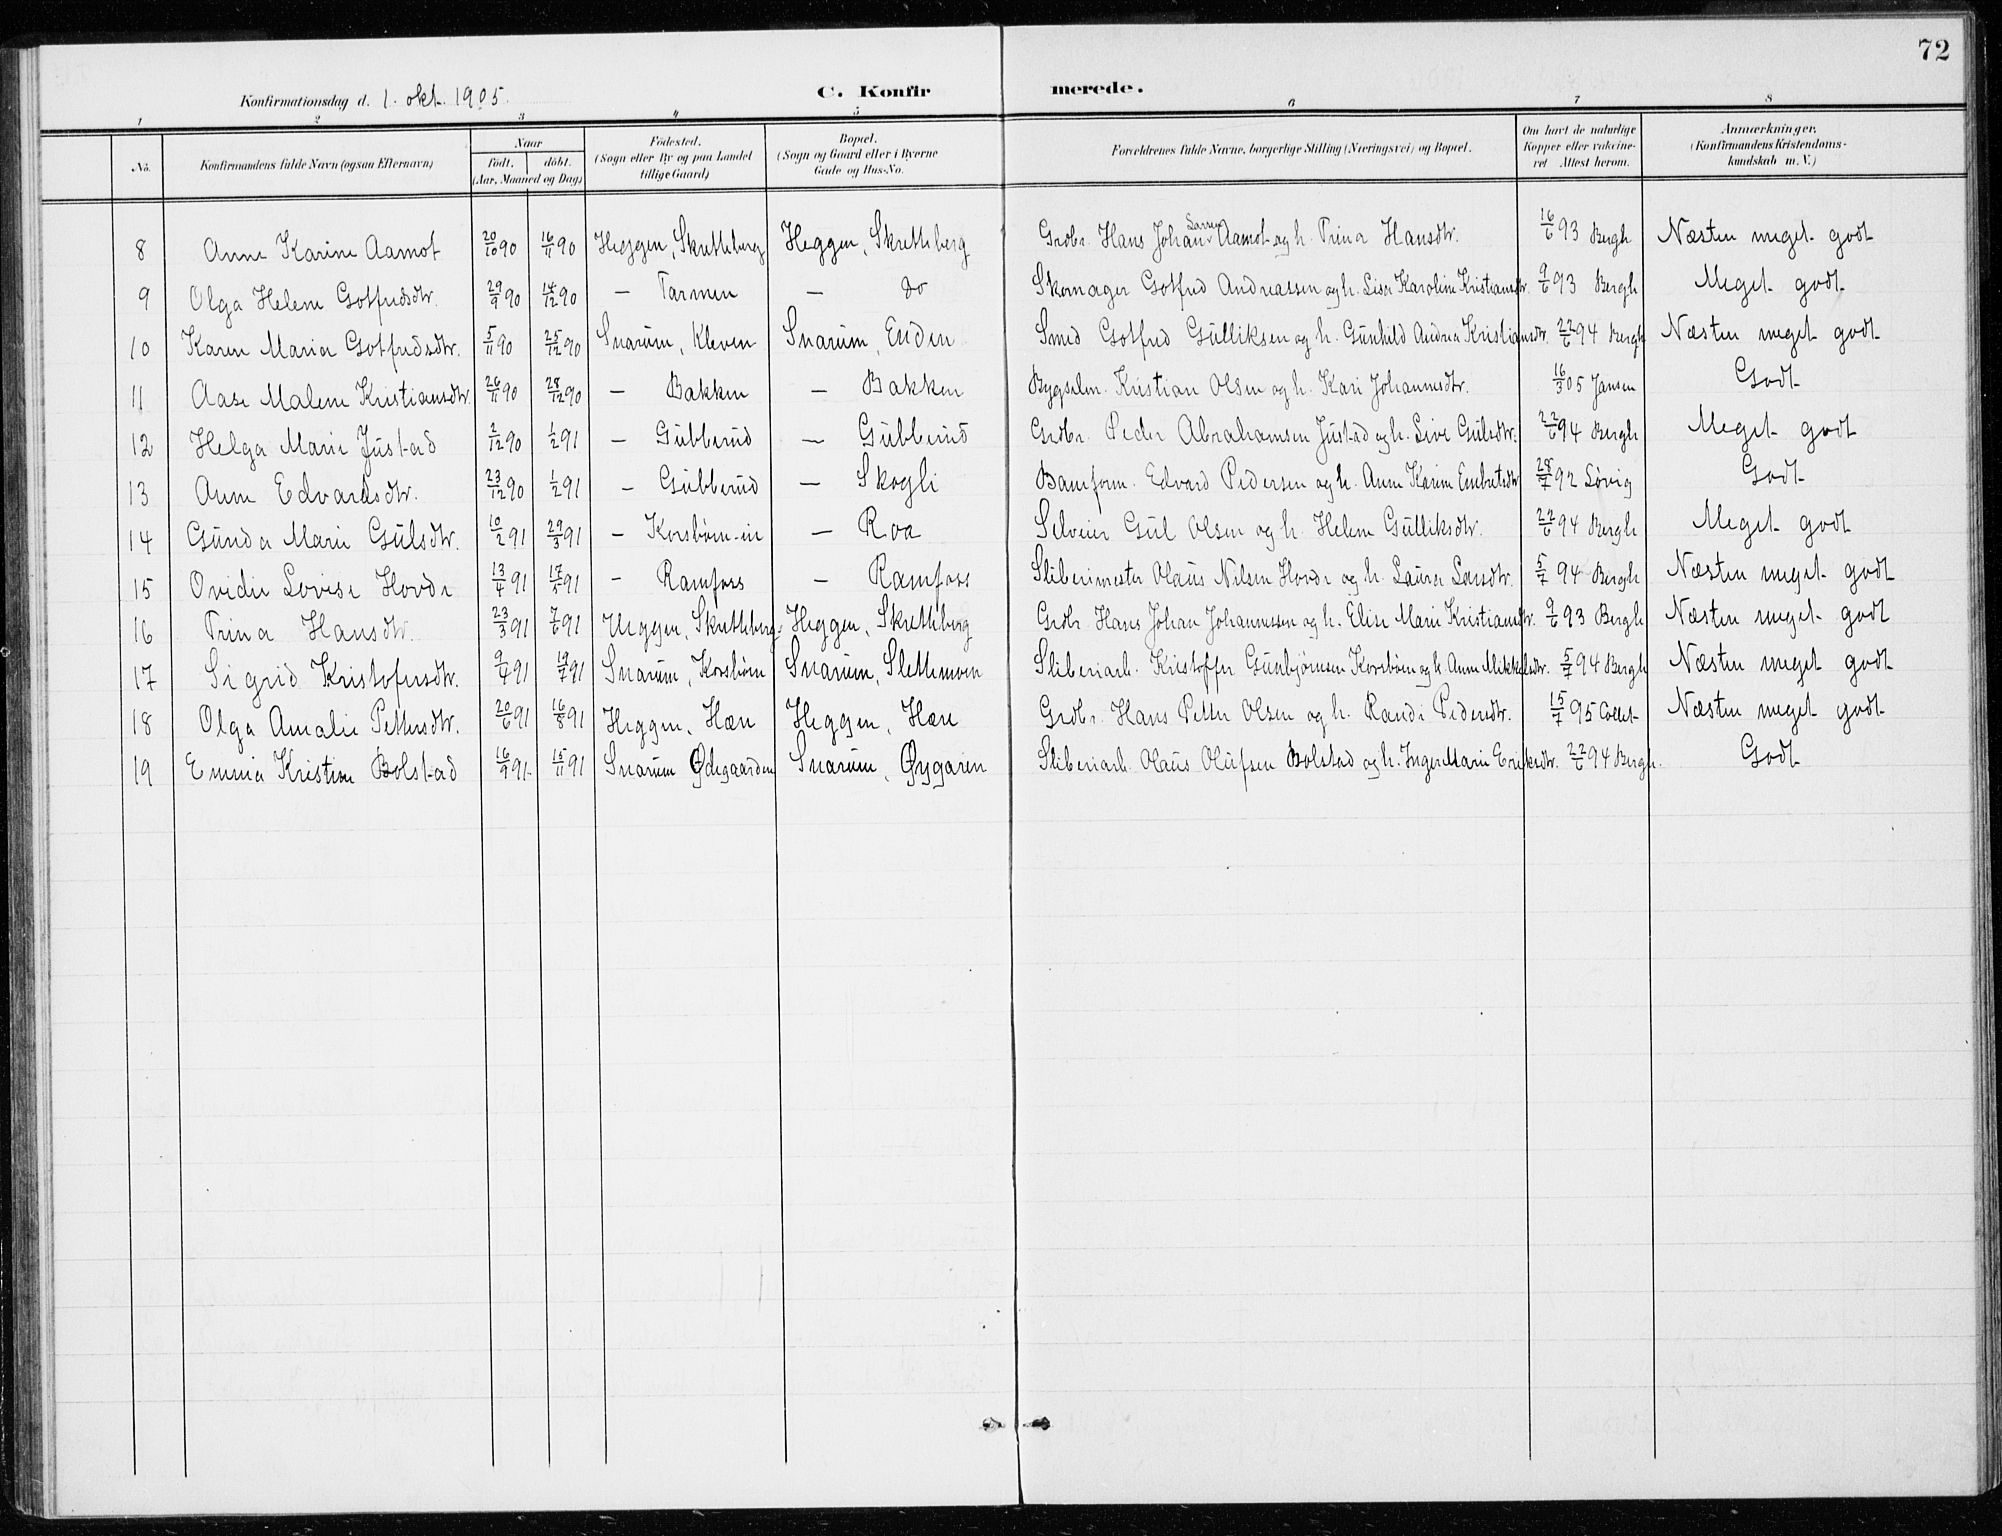 72
Konfirmationsdag d. 1. okt. 1905. C. Konfirmerede.
1 2 3 4 5 6 7 8
No. Konfirmandens fulde Navn (ogsaa Efternavn) Naar født. døbt. (Aar, Maaned og Dag) Fødested. (Sogn eller By og paa Landet tillige Gaard) Bopæl. (Sogn og Gaard eller i Byerne Gade og Hus-No. Forældrenes fulde Navne, borgerlige Stilling (Næringsvei) og Bopæl. Om havt de naturlige Kopper eller vaccineret Attest herom. Anmærkninger. (Konfirmandens Kristendomskundskab m. V.)
8 Anne Karine Aamot 20/10 90 16/11 90 Heggen, Skretteberg Heggen, Skretteberg Grdbr. Hans Johan Larsen Aamot og h. Trina Hansdtr. 16/6 93 Bergh Næsten meget godt
9 Olga Helene Gotfredsdtr. 29/9 90 14/12 90 — Tarmen — do Skomager Gotfred Andreassen og h. Lisa Karoline Kristiansdtr. 9/6 93 Bergh Meget godt
10 Karen Maria Gotfredsdtr. 5/11 90 25/12 90 Snarum, Kleven Snarum, Enden Smed Gotfred Gulliksen og h. Gunhild Andrea Kristiansdtr. 22/6 94 Bergh Næsten meget godt
11 Aase Malene Kristiansdtr. 26/11 90 28/12 90 — Bakken — Bakken Bygselm. Kristian Olsen og h. Kari Johannesdtr. 16/3 05 Jansen Godt
12 Helga Marie Justad 2/12 90 1/2 91 — Gubberud — Gubberud Grdbr. Peder Abrahamsen Justad og h. Live Gulsdtr. 22/6 94 Bergh Meget godt
13 Anne Edvardsdtr. 23/12 90 1/2 91 — Gubberud — Skogli Baneform. Edvard Pedersen og h. Anne Karine Embretsdtr. 28/7 92 Løvig Godt
14 Gunda Marie Gulsdtr. 10/2 91 29/3 91 — Korsbøen-eie — Roa Selveier Gul Olsen og h. Helene Gulliksdtr. 22/6 94 Bergh Meget godt
15 Ovidie Lovise Hovde 13/4 91 17/5 91 — Ramfoss — Ramfoss Sliberimester Olaus Nilsen Hovde og h. Laura Larsdtr. 5/7 94 Bergh Næsten meget godt
16 Trina Hansdtr. 23/3 91 7/6 91 Heggen, Skretteberg Heggen, Skretteberg Grdbr. Hans Johan Johannessen og h. Elise Marie Kristiansdtr. 9/6 93 Bergh Næsten meget godt
17 Sigrid Kristofersdtr. 9/4 91 19/7 91 Snarum, Korsbøen Snarum, Slettemoen Sliberiarb. Kristoffer Gunbjørnsen Korsbøen og h. Anne Mikkelsdtr. 5/7 94 Bergh Næsten meget godt
18 Olga Amalie Pettersdtr. 20/6 91 16/8 91 Heggen, Hæn Heggen, Hæn Grdbr. Hans Petter Olsen og h. Randi Pedersdtr. 15/7 95 Collet Næsten meget godt
19 Emma Kristine Bolstad 16/9 91 15/11 91 Snarum Ødegaarden Snarum, Øygaren Sliberiarb. Olaus Olufsen Bolstad og h. Inger Marie Eriksdtr. 22/6 94 Bergh. Godt